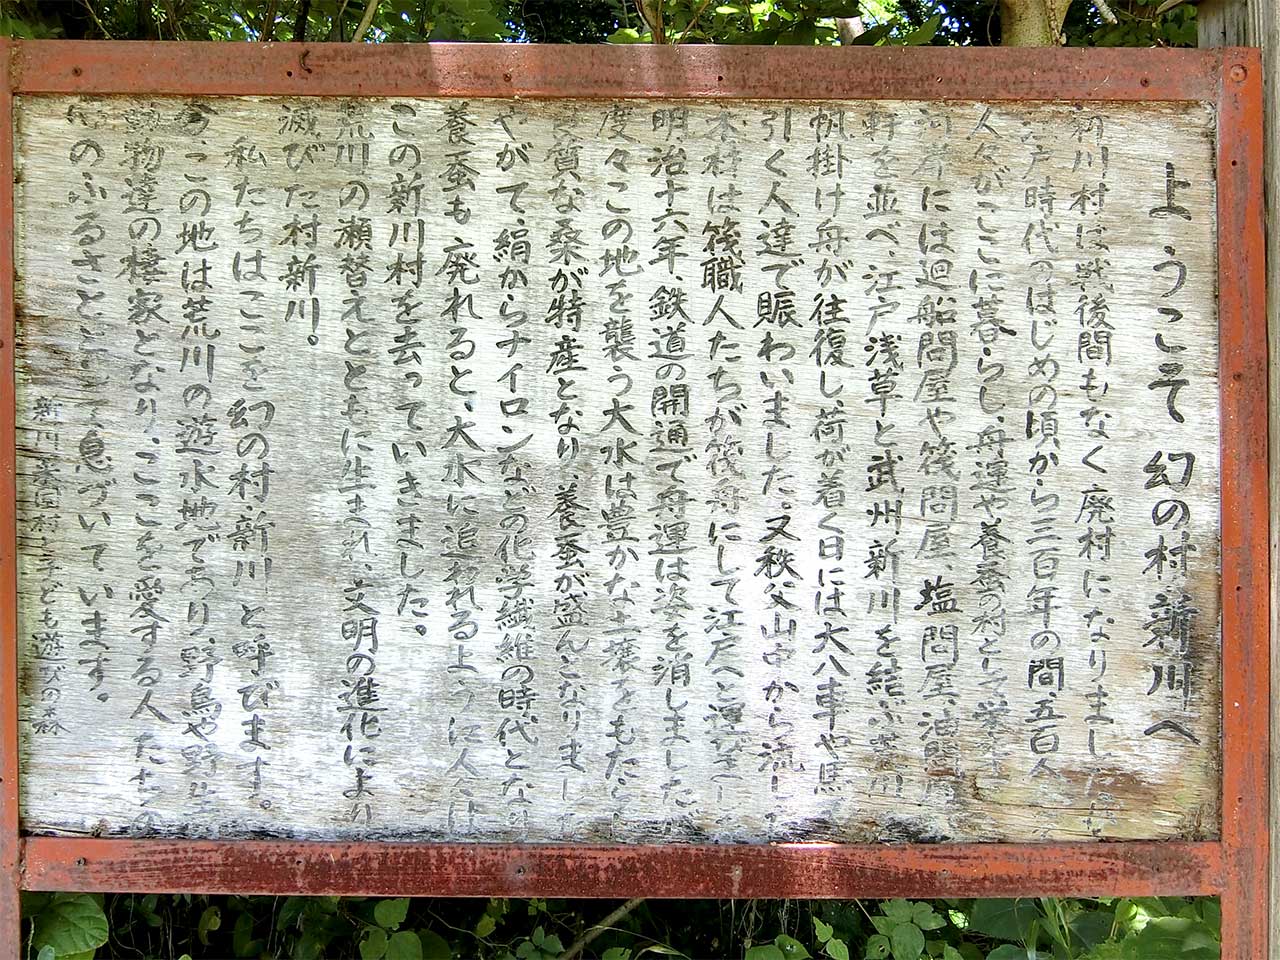 ようこそ 幻の村・新川へ
新川村は戦後間もなく廃村になりました
江戸時代のはじめの頃から三百年の間、五百人
人々がここに暮らし、舟運や養蚕の村として栄
河岸には廻船問屋や筏問屋、塩問屋、油問屋
軒を並べ、江戸浅草と武州新川を結ぶ荒川
帆掛け舟が往復し、荷が着く日には大八車や馬
引く人達で賑わいました。又秩父山中から流し
木材は筏職人たちが筏舟にして江戸へと運びました
明治十六年、鉄道の開通で舟運は姿を消しましたが
度々この地を襲う大水は豊かな土壌をもたらし
良質な桑が特産となり、養蚕が盛んになりました
やがて、絹からナイロンなどの化学繊維の時代となり
養蚕も廃れると、大水に追われるように人々は
この新川村を去っていきました。
荒川の瀬替えとともに生まれ、文明の進化により
滅びた村新川。
私たちはここを幻の村・新川と呼びます。
今、この地は荒川の遊水地であり、野鳥や野生
動物達の棲家となり、ここを愛する人たちの
心のふるさととして息づいています。
新川菜園村・子ども遊びの森